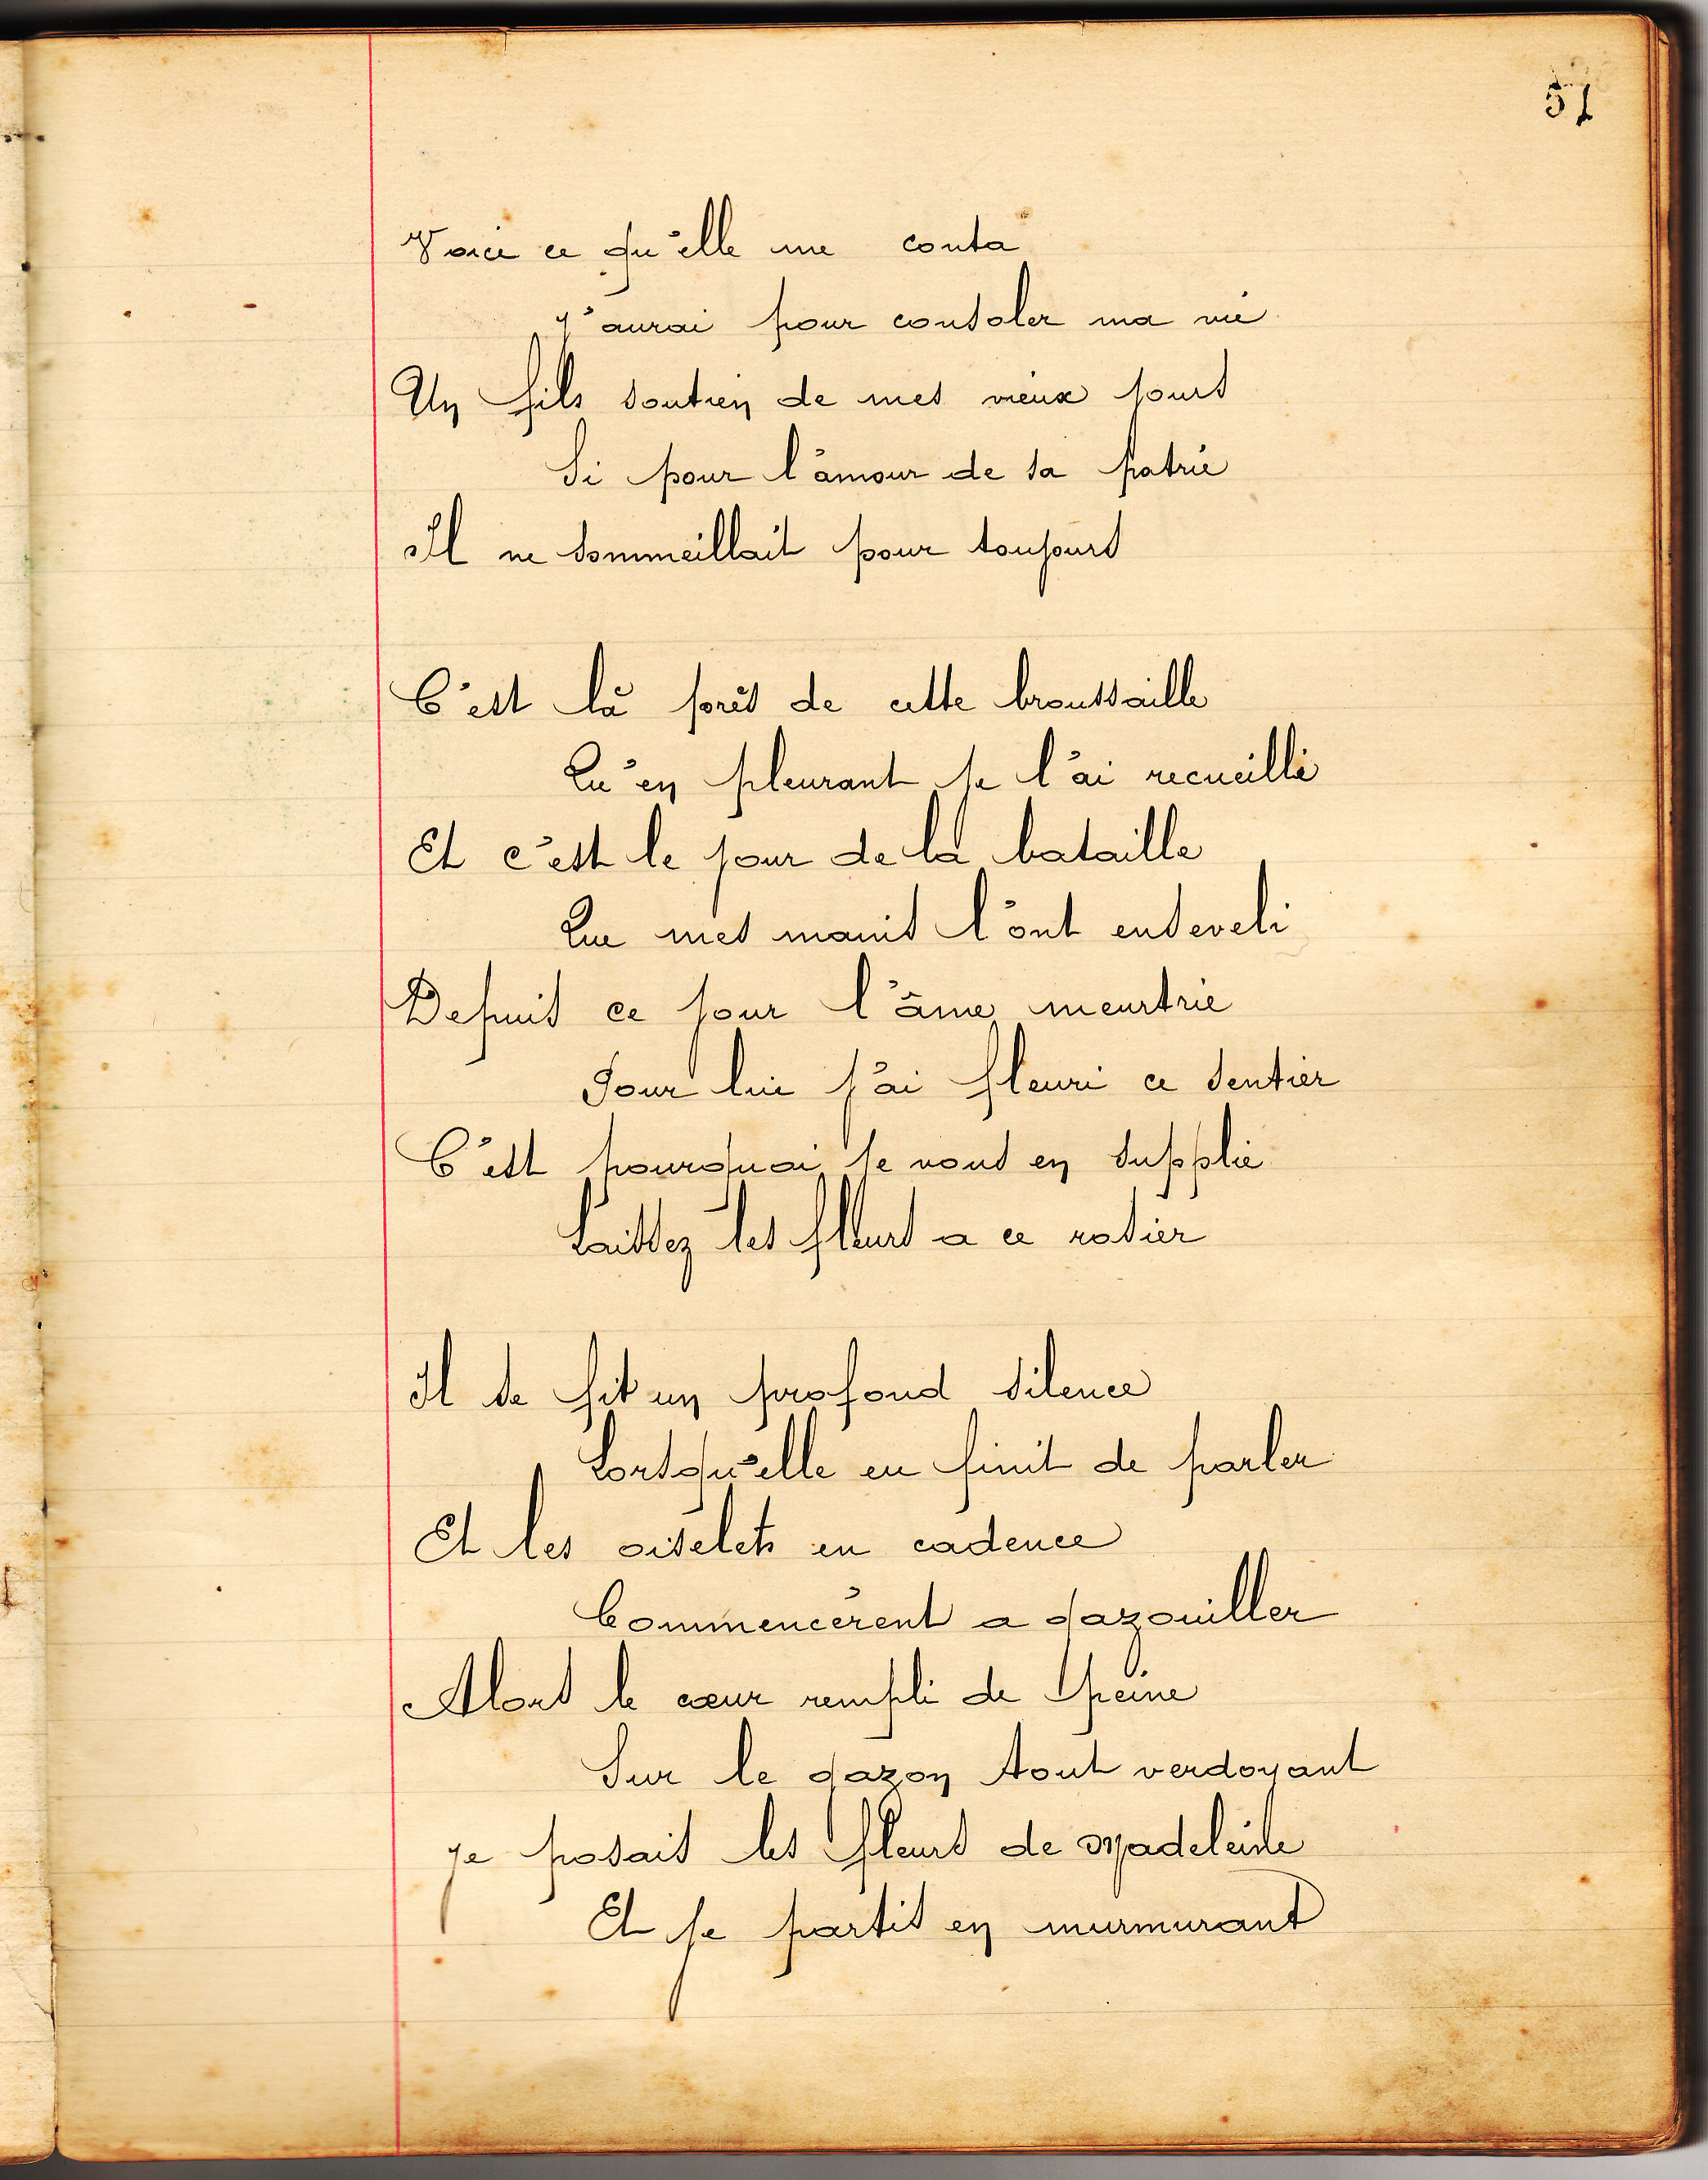 51
Voici ce qu'elle me conta
J'aurai pour consoler ma vie
Un fils soutien de mes vieux jours
Si pour l'amour de sa patrie
Il ne sommeillait pour toujours
C'est là près de cette broussaille
Qu'en pleurant je l'ai recueilli
Et c'est le jour de la bataille
Que mes mains l'ont enseveli
Depuis ce jour l'âme meurtrie
Pour lui j'ai fleuri ce sentier
C'est pourquoi je vous en supplie
Laissez les fleurs a ce rosier
Il se fit un profond silence
Lorsqu'elle eu finit de parler
Et les oiselets en cadence
Commencèrent a gazouiller
Alors le cœur rempli de peine
Sur le gazon tout verdoyant
Je posais les fleurs de Madeleine
Et je partis en murmurant